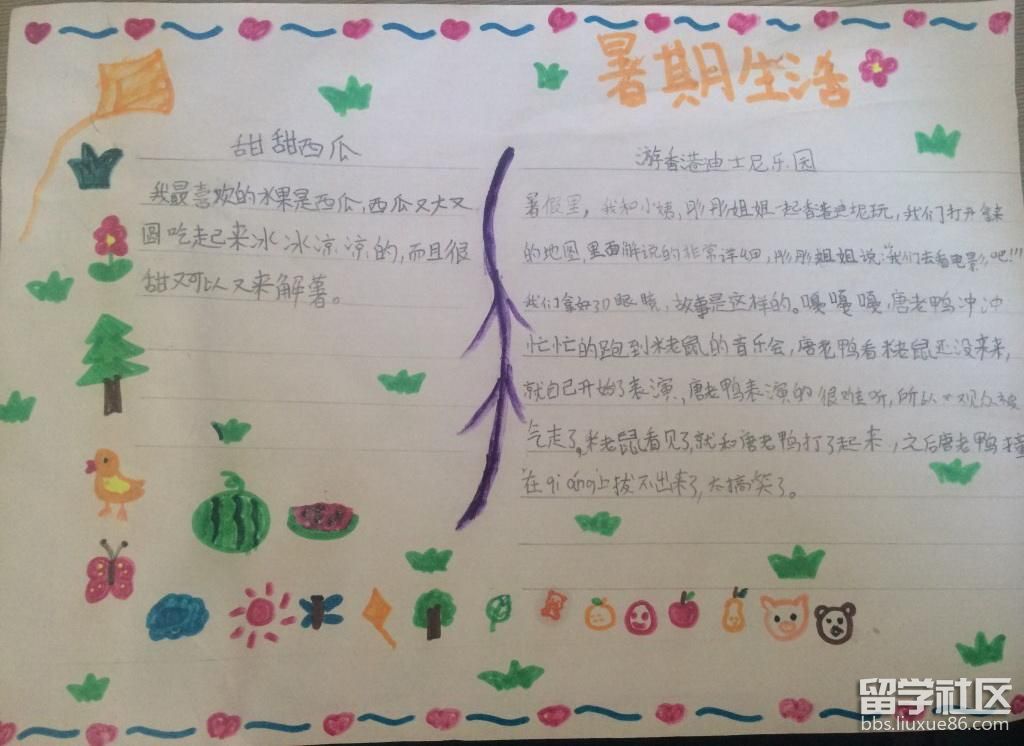 暑期生活
甜甜西瓜
我最喜欢的水果是西瓜,西瓜又大又
圆吃起来冰冰凉凉的,而且很
甜又可以又来解暑。
游香港迪士尼乐园
暑假里,我和小姨,彤彤姐姐一起香港迪尼玩,我们打开
的地图,里面解说的非常详细,彤彤姐姐说:“我们去看电影吧!!!”
我们拿好3D眼睛,故事是这样的。嘎嘎嘎,唐老鸭冲冲
忙忙的跑到米老鼠的音乐会,唐老鸭看米老鼠还没来来,
就自己开始了表演,唐老鸭表演的很难听,所以观众被
气走了,米老鼠看见了就和唐老鸭打了起来,之后唐老鸭撞
在qiáng上拔不出来了,太搞笑了。
留学社区
bbs.liuxue86.com